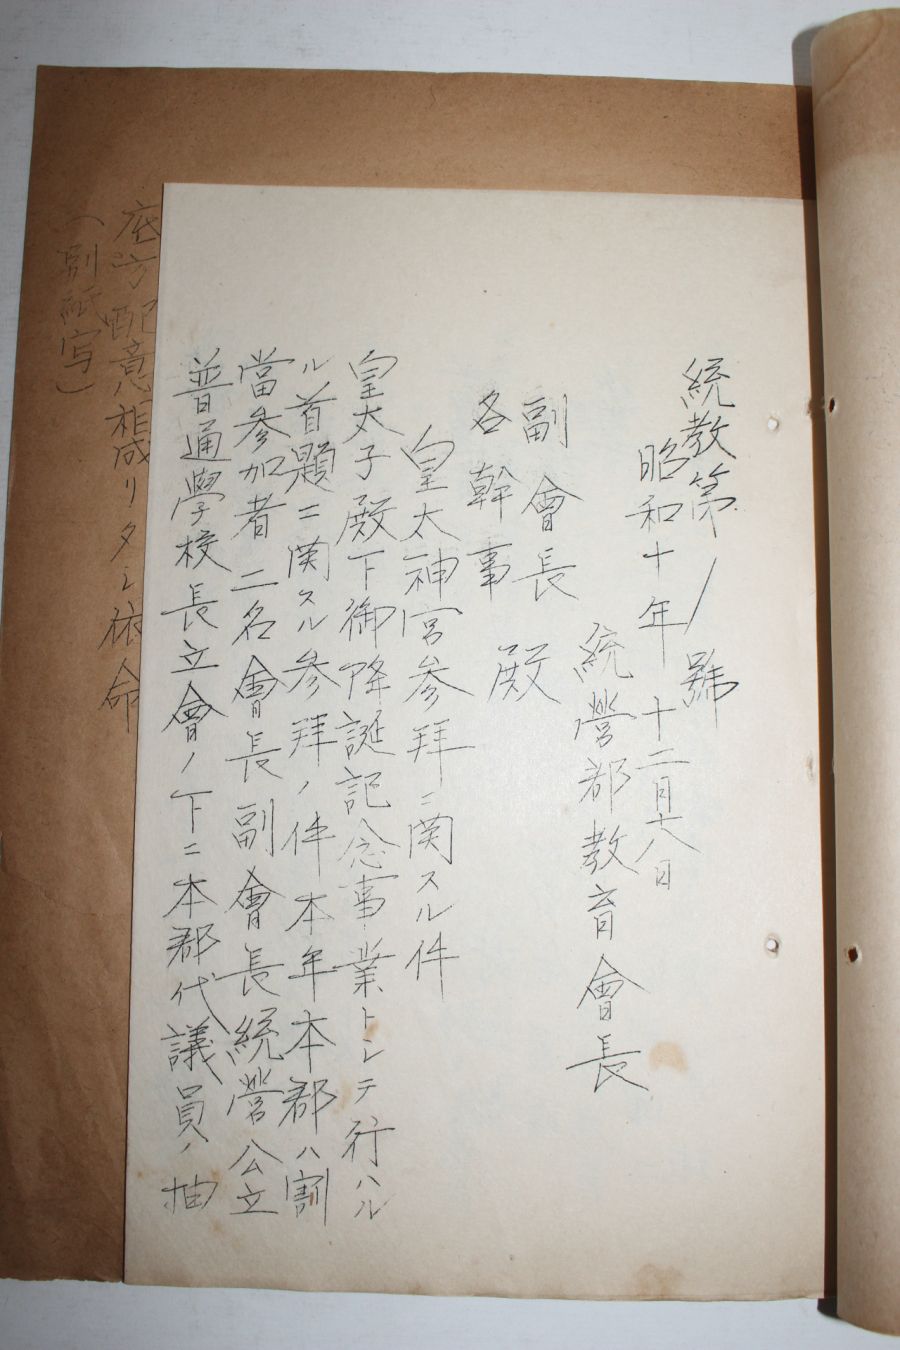 統教第1號
昭和十年十二月十八日
統營郡教育會長
副會長
各幹事 殿
皇太神宮參拜ニ関スル件
皇太子殿下御降誕記念事業トシテ行ハル
ル首題ニ関スル參拜ノ件本年本郡ハ割
當參加者二名會長副會長統營公立
普通學校長立會ノ下ニ本郡代議員ノ抽
度方配意相成リタシ依命
(別紙写)